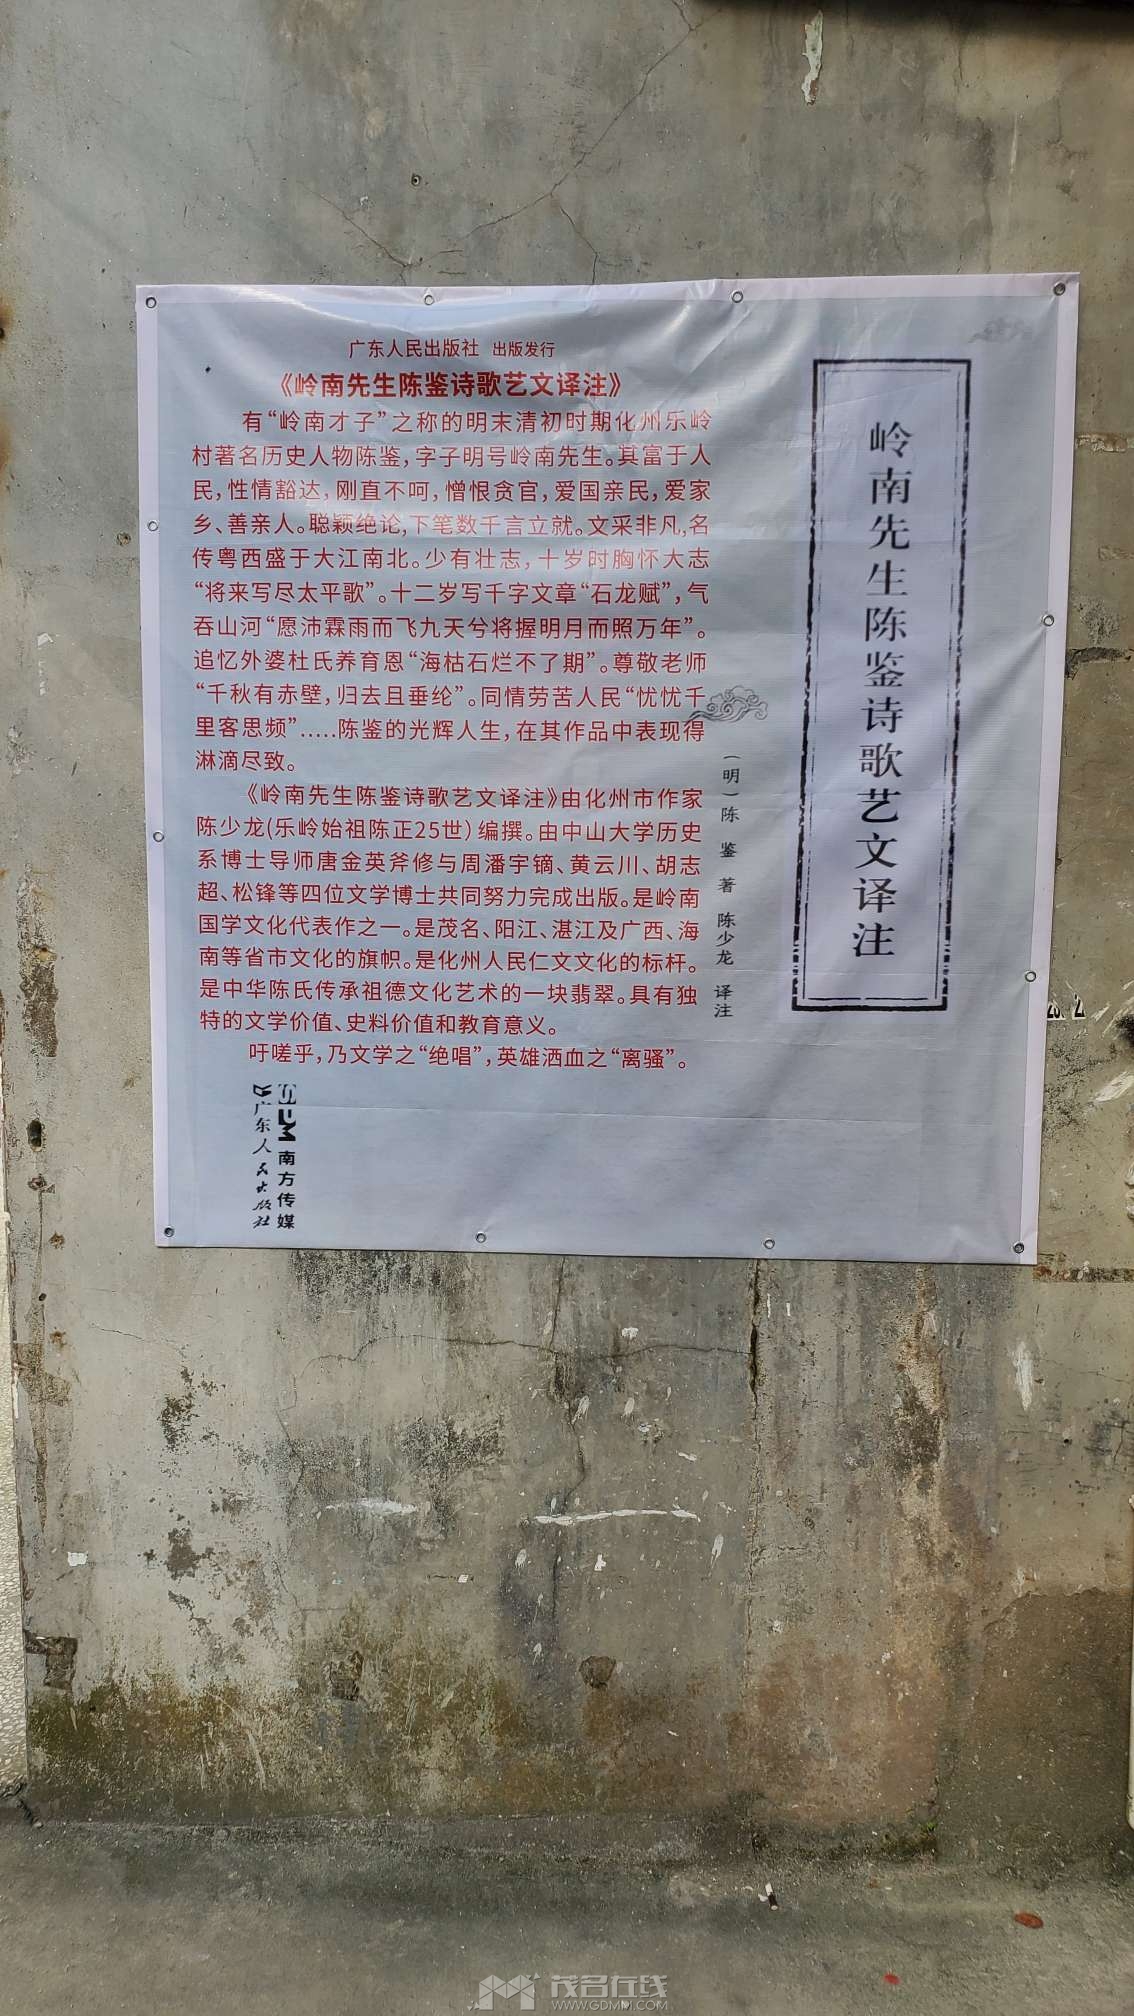 广东人民出版社 出版发行
《岭南先生陈鉴诗歌艺文译注》
有“岭南才子”之称的明末清初时期化州乐岭
村著名历史人物陈鉴，字子明号岭南先生。其富于人
民，性情豁达，刚直不呵，憎恨贪官，爱国亲民，爱家
乡、善亲人。聪颖绝论，下笔数千言立就。文采非凡，名
传粤西盛于大江南北。少有壮志，十岁时胸怀大志
“将来写尽太平歌”。十二岁写千字文章“石龙赋”，气
吞山河“愿沛霖雨而飞九天兮将握明月而照万年”。
追忆外婆杜氏养育恩“海枯石烂不了期”。尊敬老师
“千秋有赤壁，归去且垂纶”。同情劳苦人民“忧忧千
里客思频”.....陈鉴的光辉人生，在其作品中表现得
淋滴尽致。
《岭南先生陈鉴诗歌艺文译注》由化州市作家
陈少龙(乐岭始祖陈正25世）编撰。由中山大学历史
系博士导师唐金英斧修与周潘宇镝、黄云川、胡志
超、松锋等四位文学博士共同努力完成出版。是岭南
国学文化代表作之一。是茂名、阳江、湛江及广西、海
南等省市文化的旗帜。是化州人民仁文文化的标杆。
是中华陈氏传承祖德文化艺术的一块翡翠。具有独
特的文学价值、史料价值和教育意义。
吁嗟乎，乃文学之“绝唱”，英雄洒血之“离骚”。
岭南先生陈鉴诗歌艺文译注
（明）陈鉴 著 陈少龙 译注
南方传媒
广东人民出版社
茂名在线
WWW.GDMM.COM